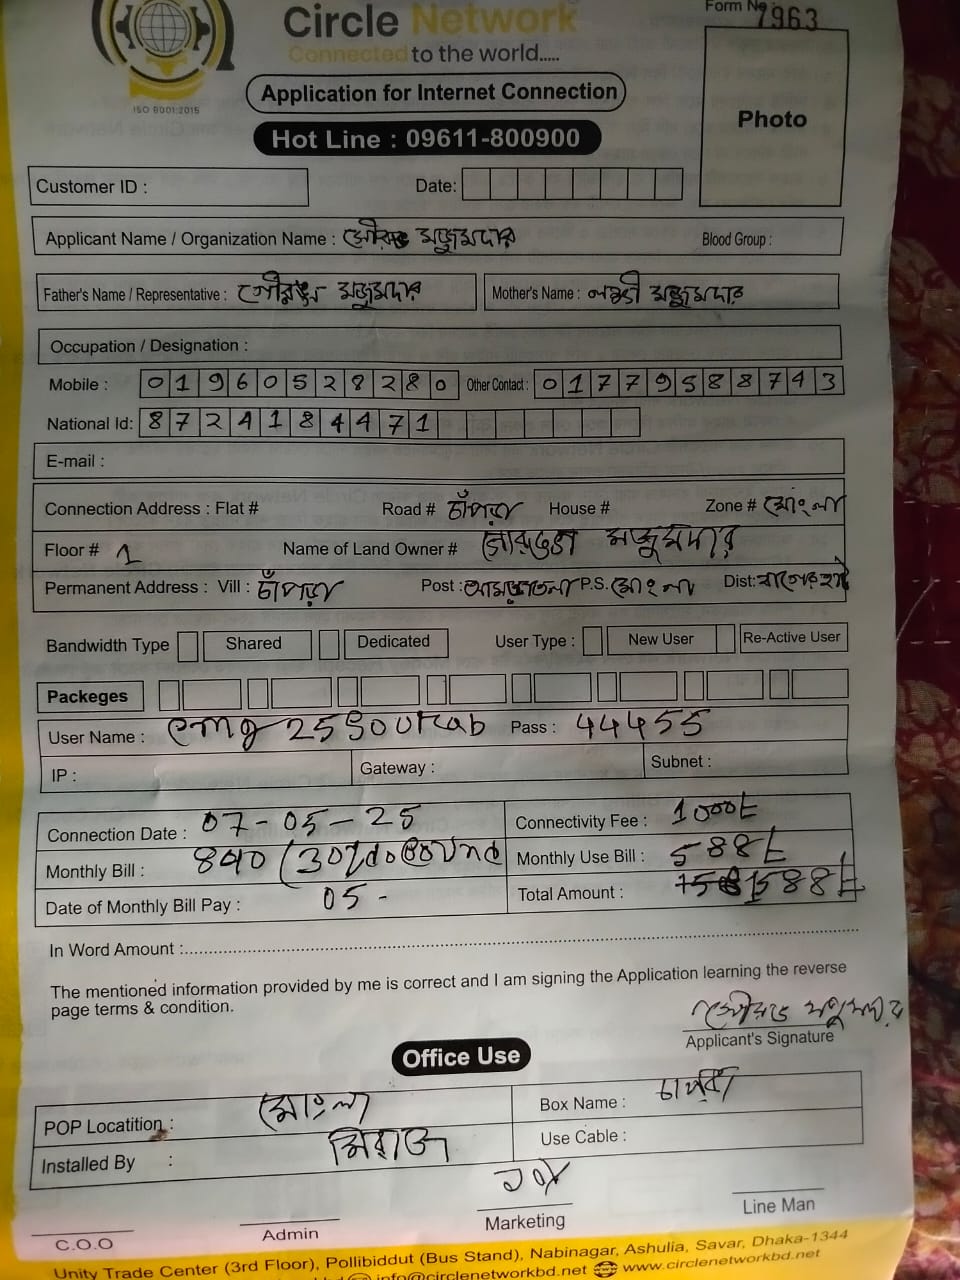 Circle Network
Form No. 7963
Connected to the world.....
ISO 9001:2015
Application for Internet Connection
Photo
Hot Line : 09611-800900
Customer ID :
Date:
Applicant Name / Organization Name : সৌরভ মজুমদার Blood Group :
Father's Name / Representative : গৌরাঙ্গ মজুমদার Mother's Name : লক্ষ্মী মজুমদার
Occupation / Designation :
Mobile : 01960528280 Other Contact : 01779588743
National Id: 8724184471
E-mail :
Connection Address : Flat # Road # চাঁপড়া House # Zone # মোংলা
Floor # 1 Name of Land Owner # মজুমদার
Permanent Address : Vill : চাঁপড়া Post : P.S. মোংলা Dist: বাগেরহাট
Bandwidth Type Shared Dedicated User Type : New User Re-Active User
Packeges
User Name : cmg25Sourab Pass : 44455
IP : Gateway : Subnet :
Connection Date : 07-05-25 Connectivity Fee : 1000৳
Monthly Bill : 840 (30% Monthly Use Bill : 588৳
Date of Monthly Bill Pay : 05 - Total Amount : 1588৳
In Word Amount :
The mentioned information provided by me is correct and I am signing the Application learning the reverse
page terms & condition.
সৌরভ মজুমদার
Applicant's Signature
Office Use
POP Locatition : মোংলা Box Name : চাপড়া
Installed By : মিরাজ Use Cable :
C.O.O Admin Marketing Line Man
Unity Trade Center (3rd Floor), Pollibiddut (Bus Stand), Nabinagar, Ashulia, Savar, Dhaka-1344
info@circlenetworkbd.net www.circlenetworkbd.net